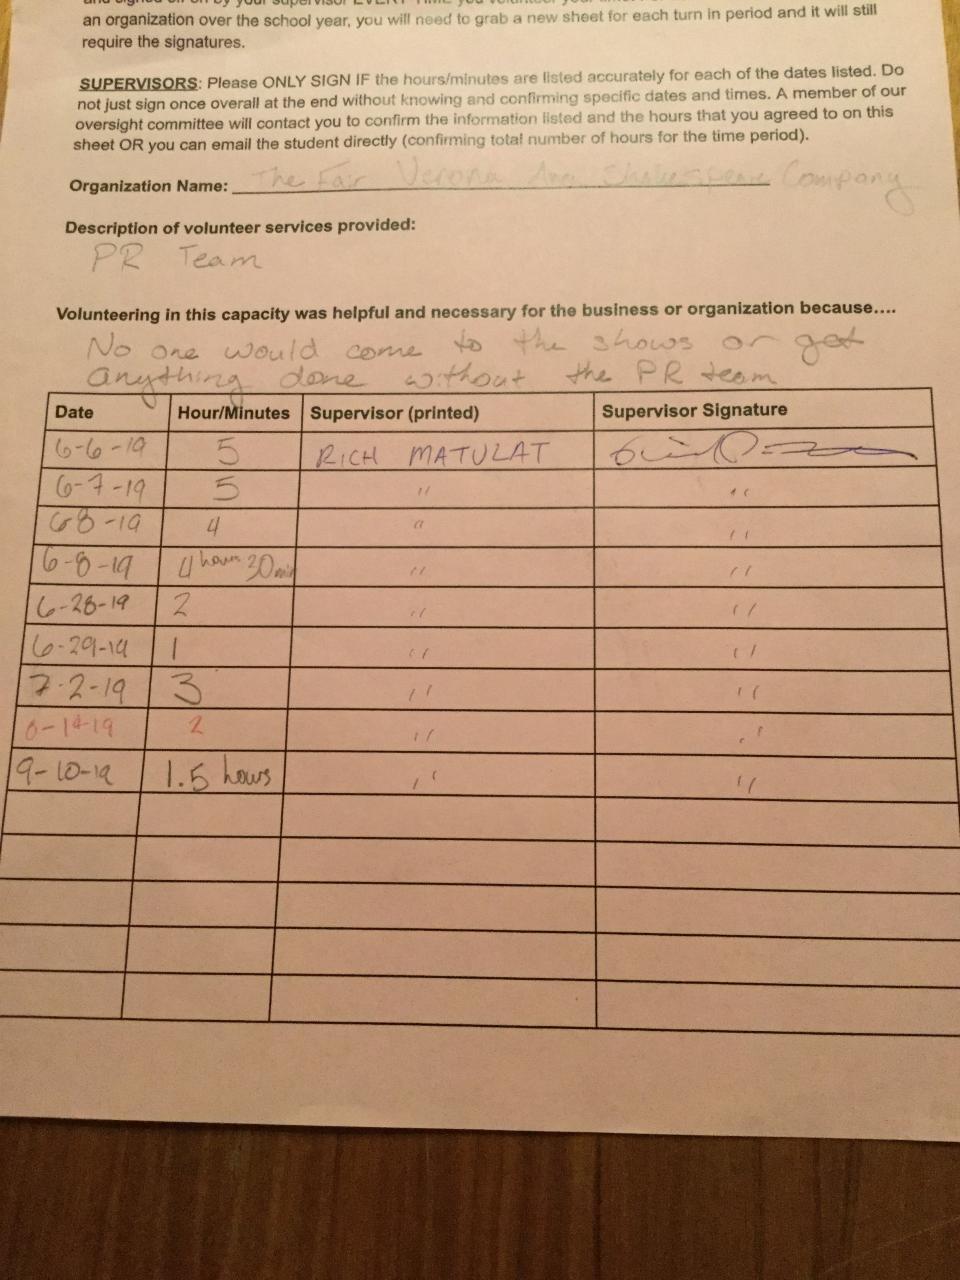 an organization over the school year, you will need to grab a new sheet for each turn in period and it will still
require the signatures.
SUPERVISORS: Please ONLY SIGN IF the hours/minutes are listed accurately for each of the dates listed. Do
not just sign once overall at the end without knowing and confirming specific dates and times. A member of our
oversight committee will contact you to confirm the information listed and the hours that you agreed to on this
sheet OR you can email the student directly (confirming total number of hours for the time period).
Organization Name: The Fair Verona Shakespeare Company
Description of volunteer services provided:
PR Team
Volunteering in this capacity was helpful and necessary for the business or organization because....
No one would come to the shows or get
anything done without the PR team
Date Hour/Minutes Supervisor (printed) Supervisor Signature
6-6-19 5 RICH MATULAT
6-7-19 5 " "
68-19 4 " "
6-8-19 4 hours 30 min " "
6-28-19 2 " "
6-29-19 1 " "
7-2-19 3 " "
2 " "
9-10-19 1.5 hours " "